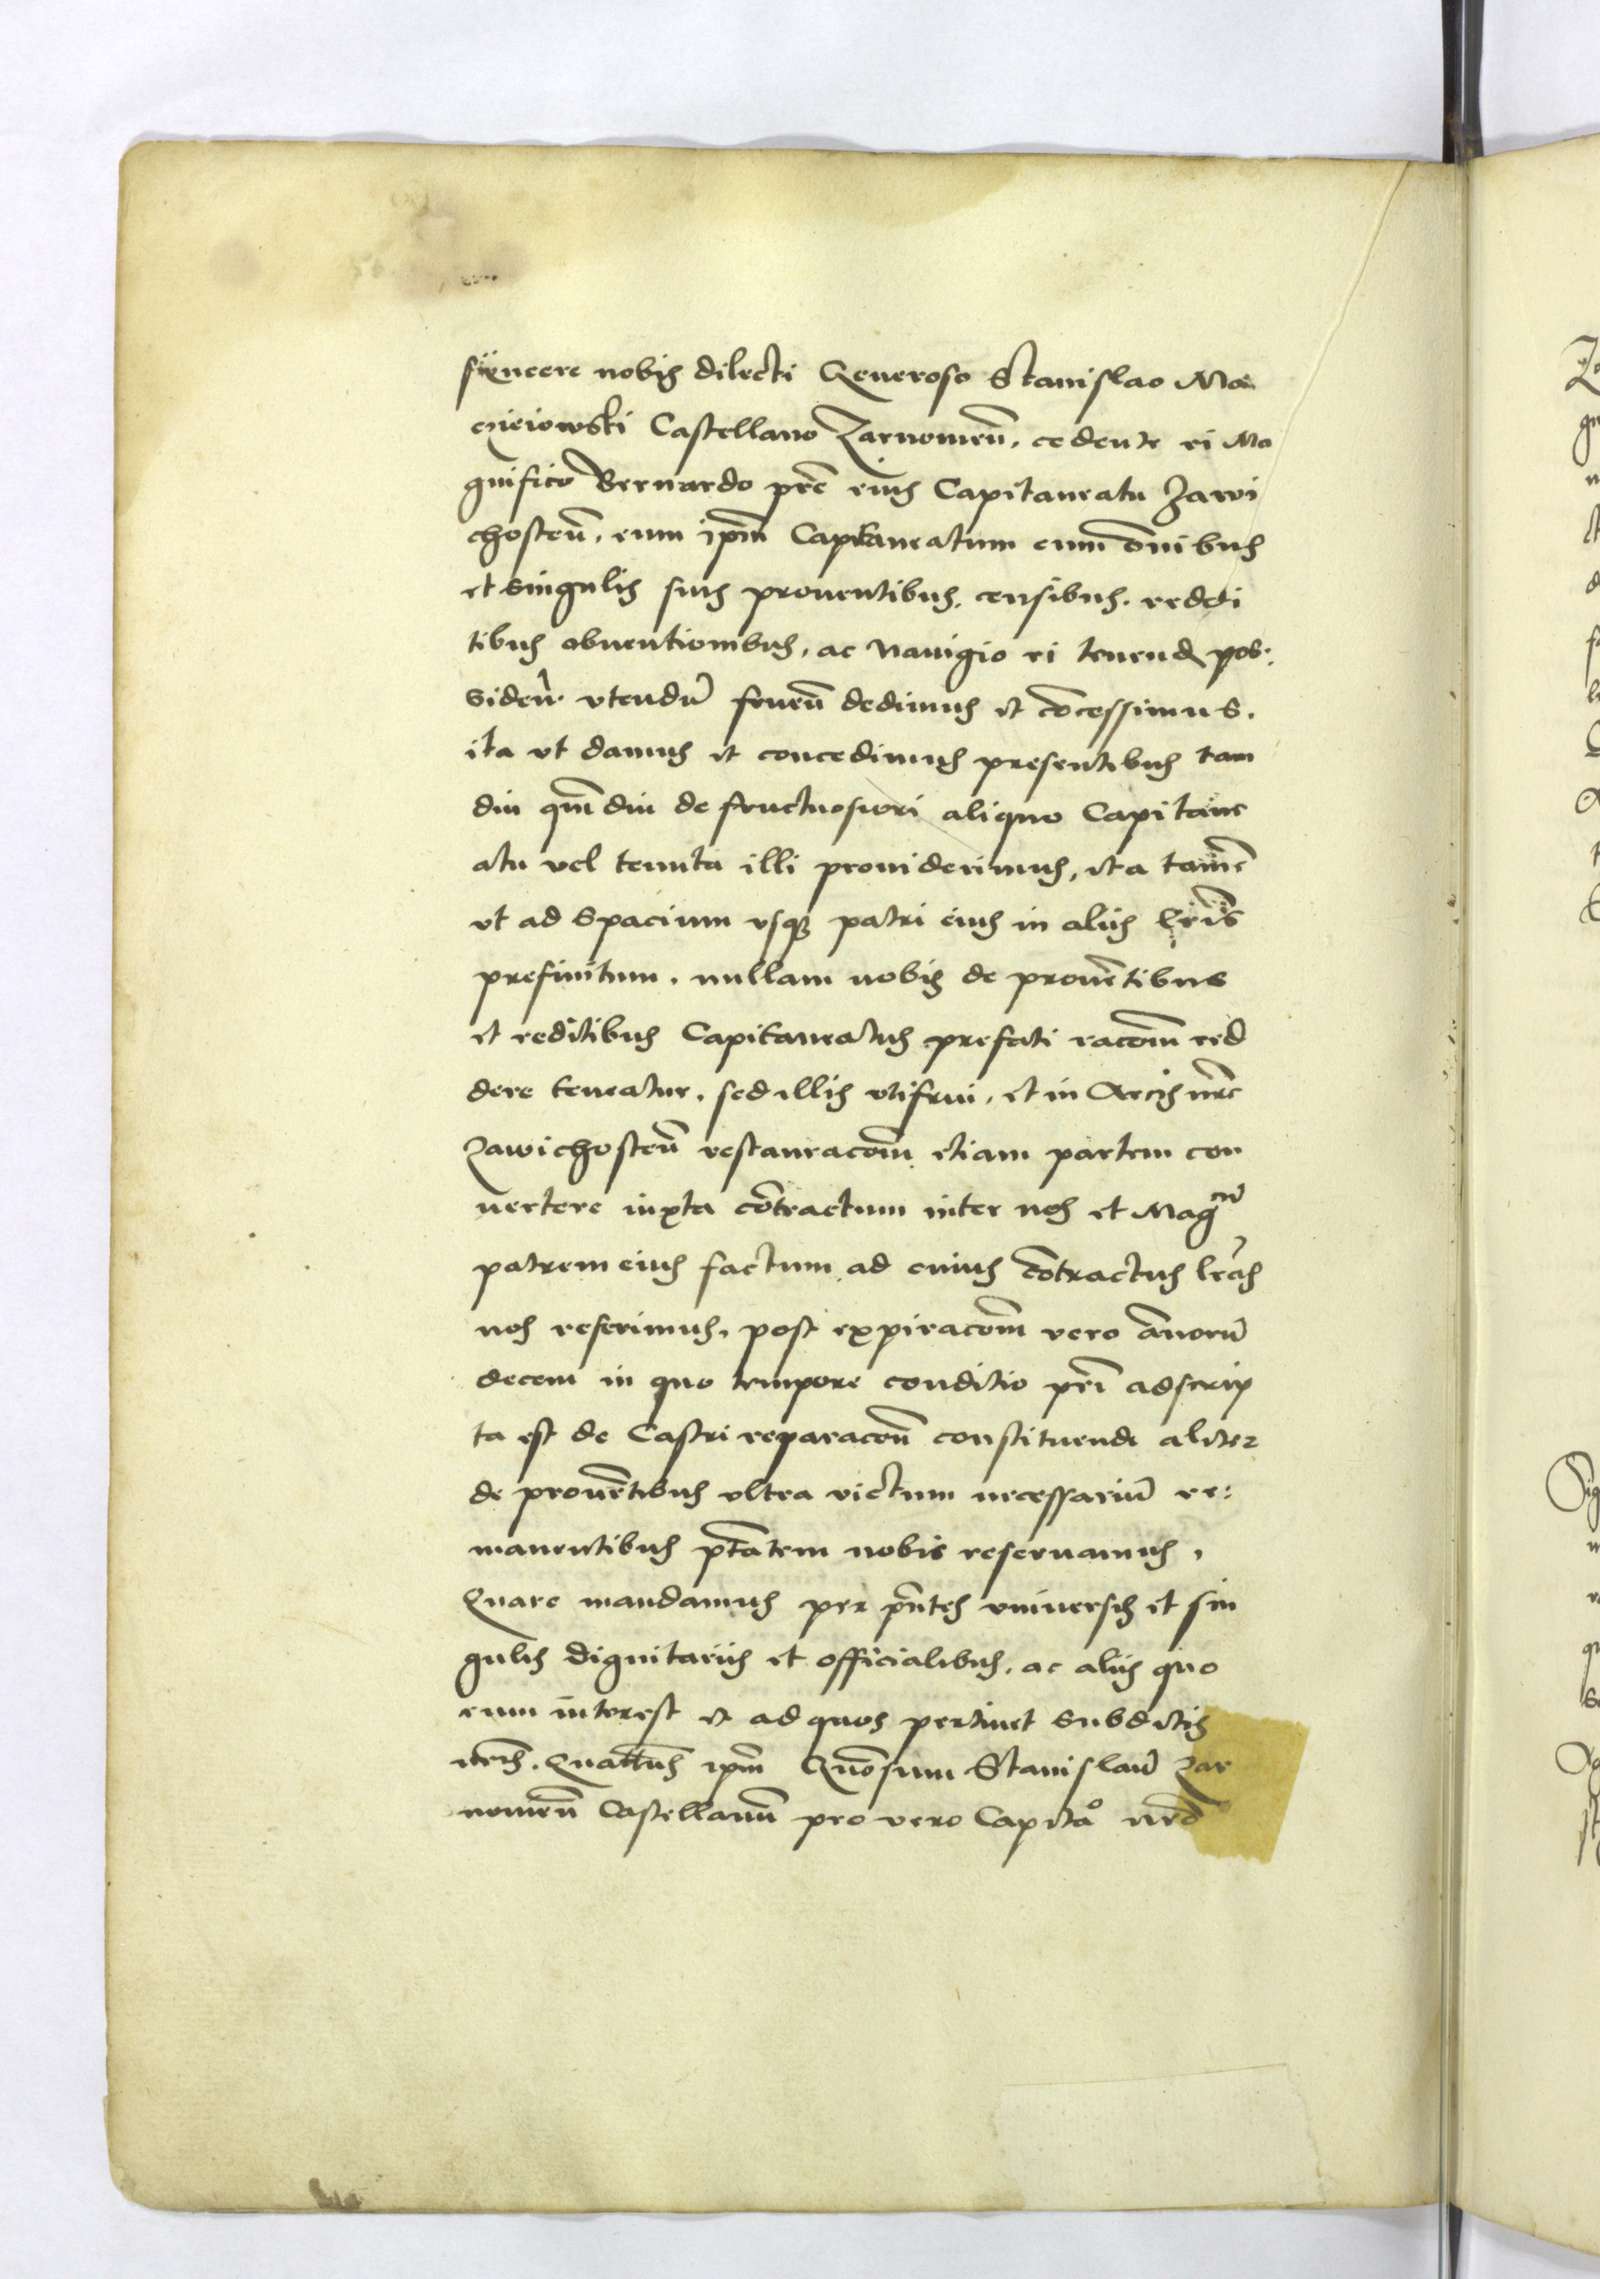 syncere nobis dilecti Generoso Stanislao Ma
czieiowski Castellano Zarnomeñ. cedente ei Ma
gnifico Bernardo pr̃e eius Capitaneatu Zawi
chosteñ. eum ip̃m Capitaneatum cum om̃ibus
et singulis suis prouentibus. censibus. reddi
tibus obuentionibus. ac Nauigio ei tenend pos:
sideñ utendũ frueñ dedimus et cõcessimus.
ita ut damus et concedimus presentibus tam
diu qm̃diu de fructuosiori aliquo Capitane
atu vel tenuta illi prouiderimus, ita tamẽ
ut ad spacium usq patri eius in aliis lr̃is
prefinitum. nullam nobis de prouẽtibus
et reditibus Capitaneatus prefati racõm red
dere teneatur. sed illis utifrui. et in Arcis nr̃e
Zawichosteñ restauracõm etiam partem con
uertere iuxta cõtractum inter nos et Mag^cũ
patrem eius factum ad cuius cõtractus lr̃as
nos referimus. post expiracõm vero ãnorũ
decem in quo tempore conditio pr̃i adscrip
ta est de Castri reparacõñ constituendi aliter
de prouẽtibus ultra victum necessariũ re:
manentibus pt̃atem nobis reseruamus.
Quare mandamus per pñtes uniuersis et sin
gulis dignitariis et officialibus. ac aliis quo
rum interest et ad quos pertinet subditis
nr̃is. Quatt̃us ip̃m Gñosum Stanislaũ Zar
nomeñ Castellanũ pro vero Capita^o nr̃o